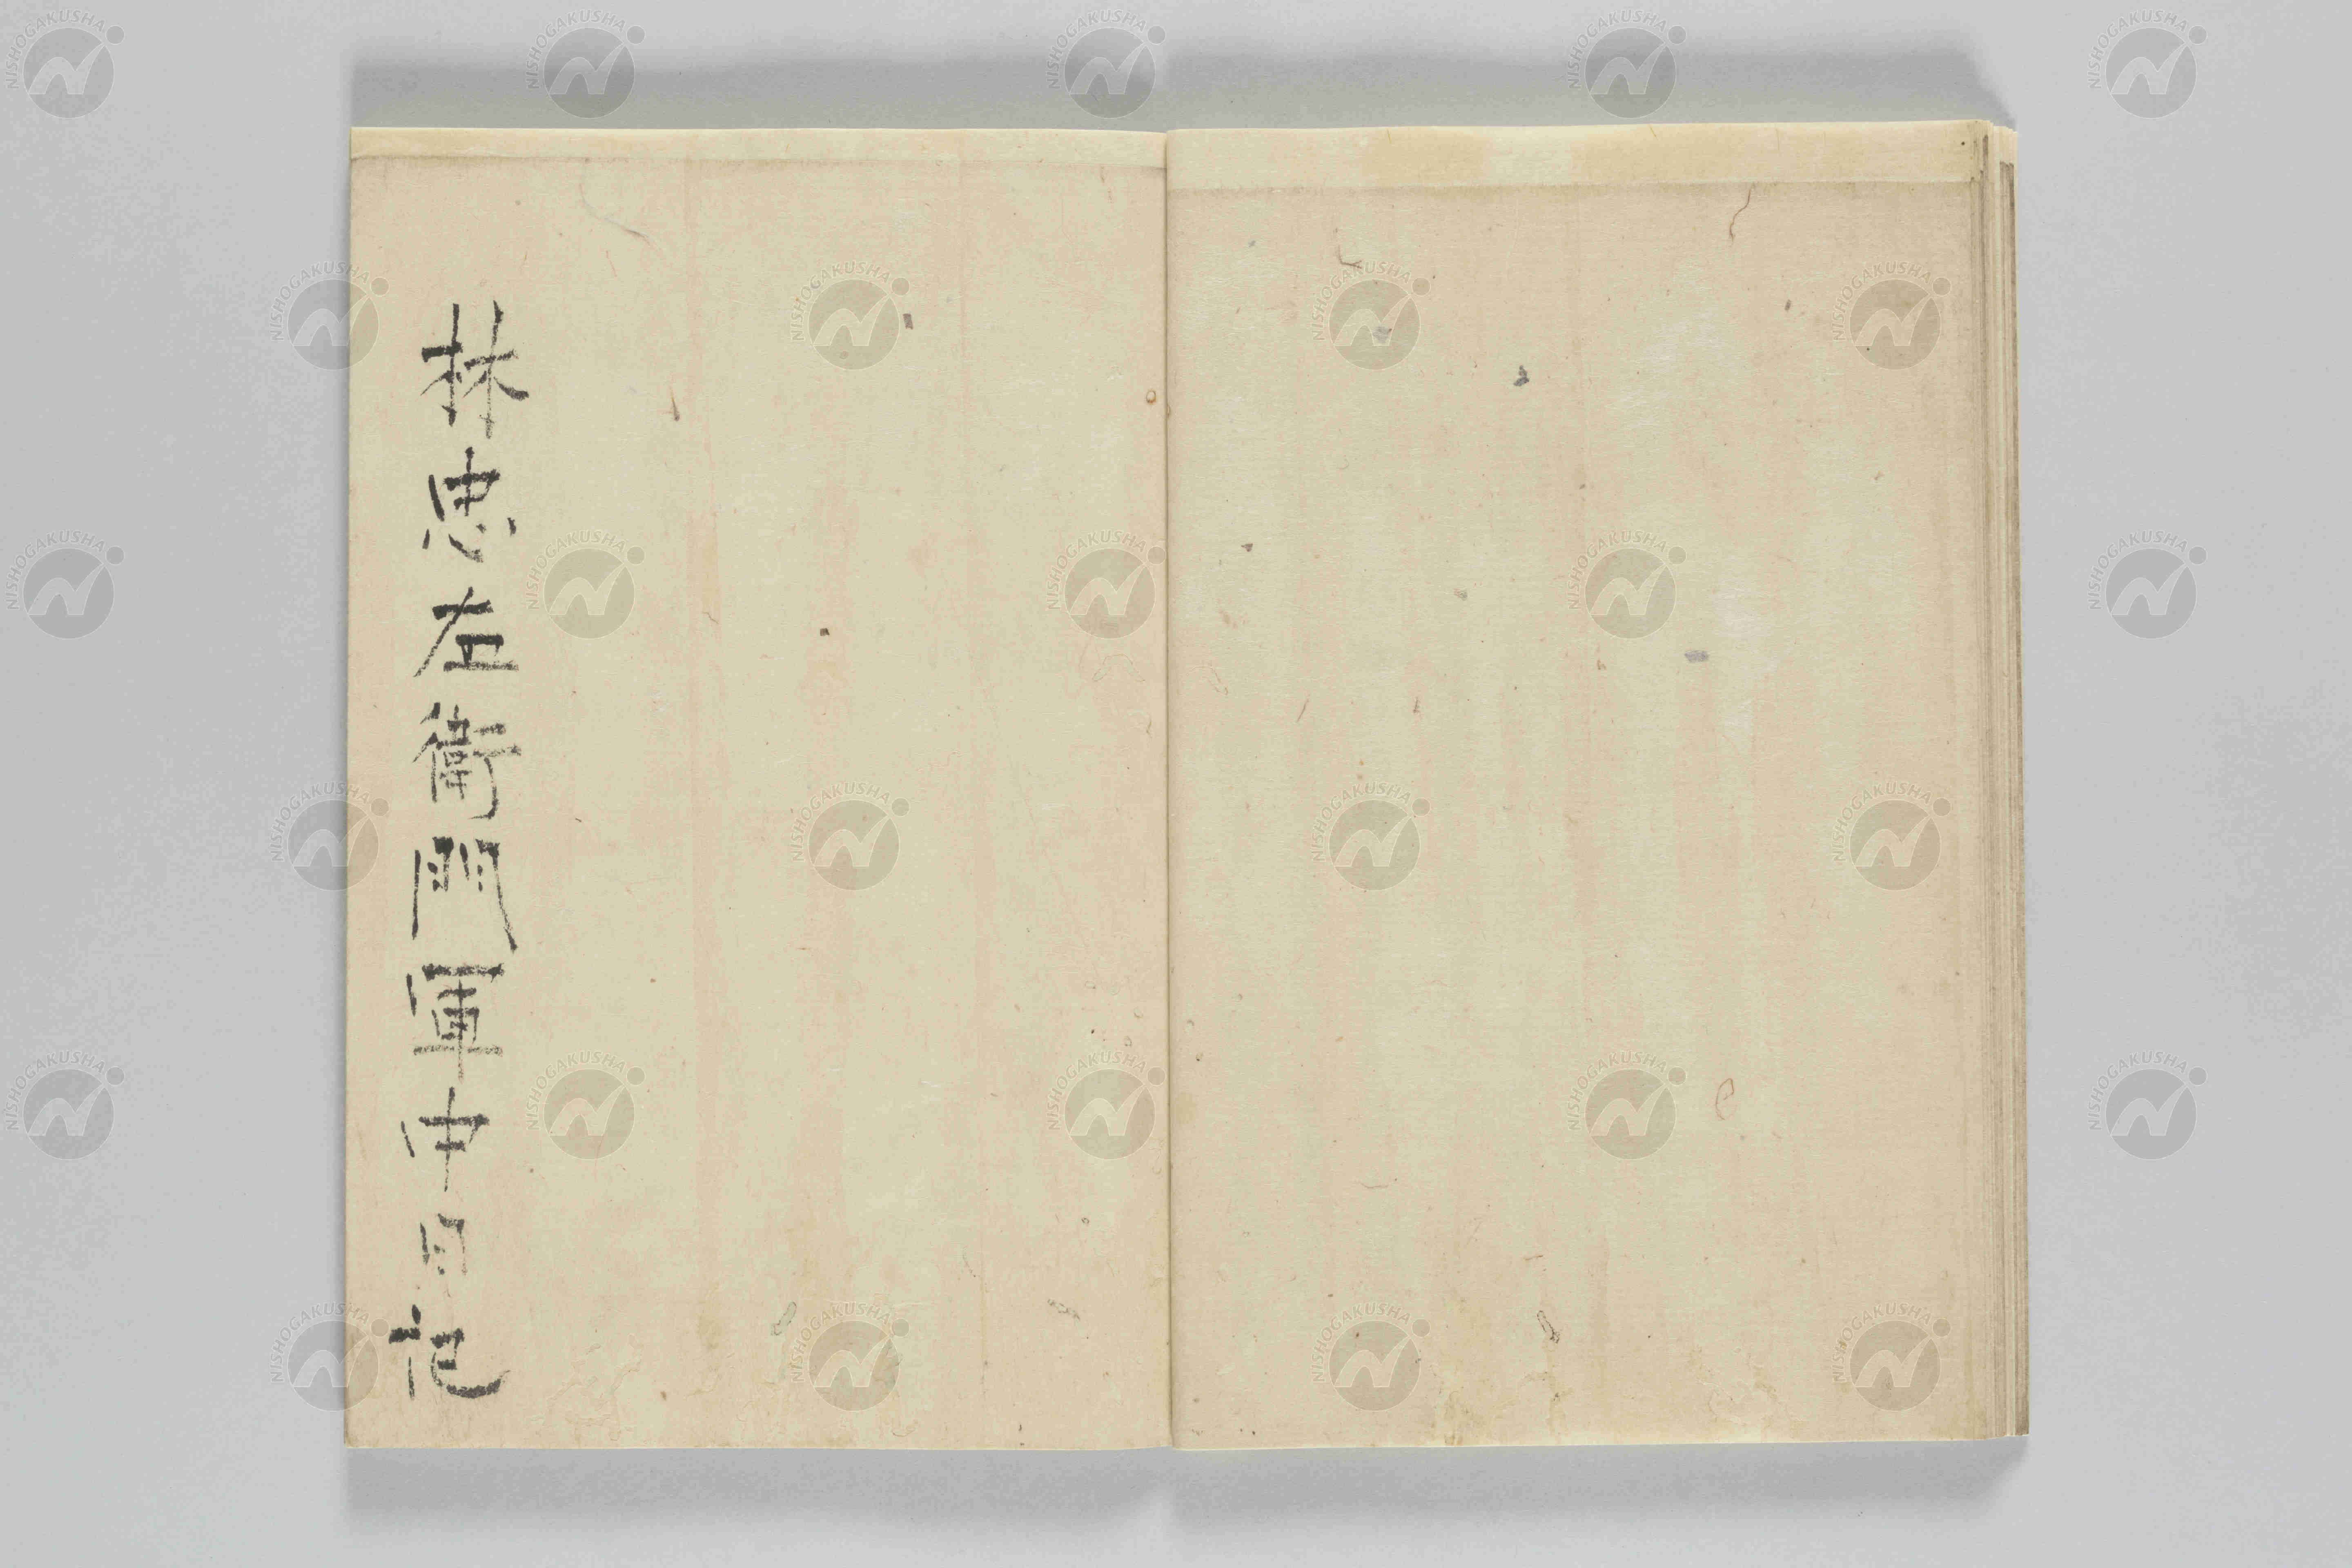 林忠左衛門軍中日記
NISHOGAKUSHA